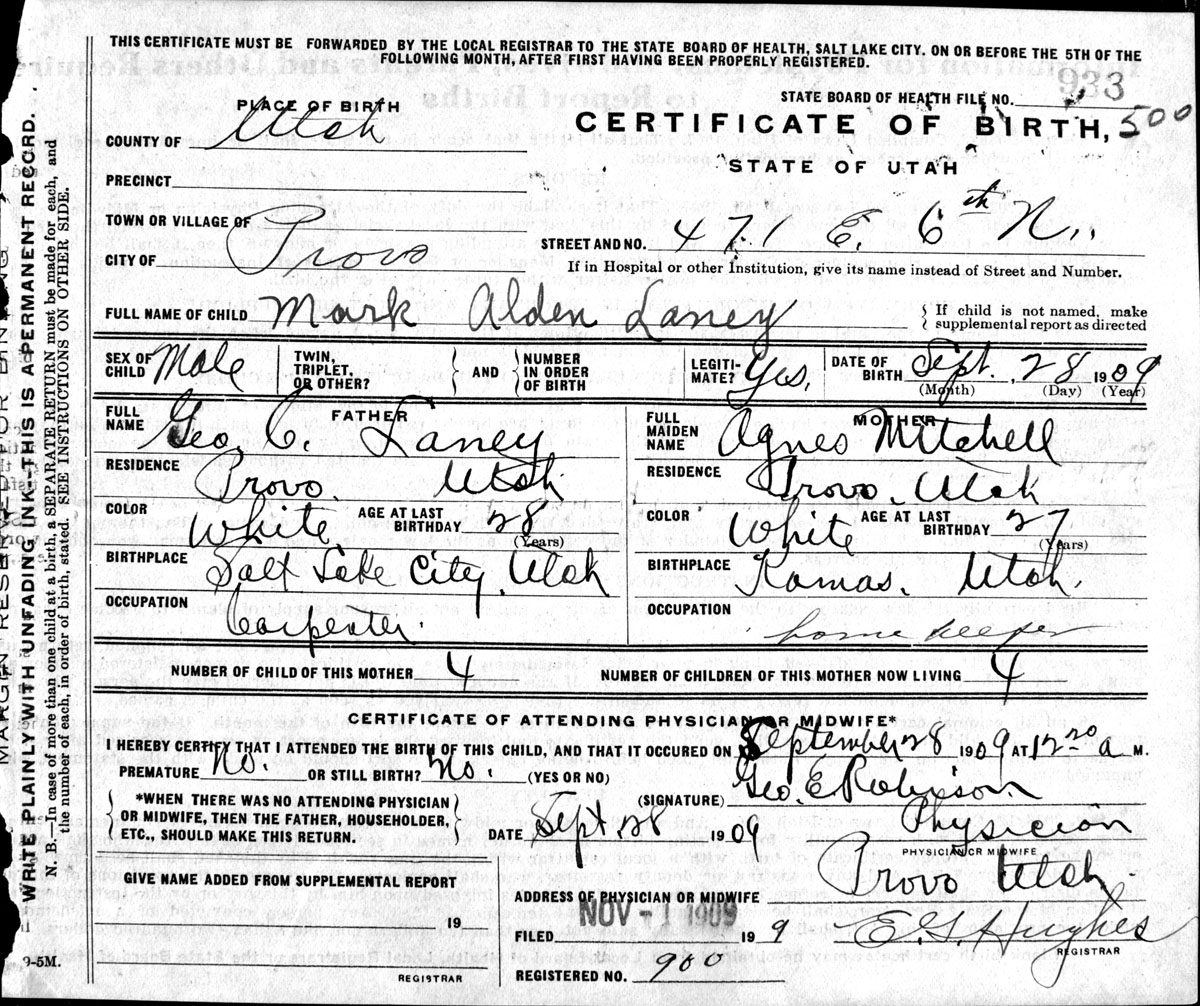 THIS CERTIFICATE MUST BE FORWARDED BY THE LOCAL REGISTRAR TO THE STATE BOARD OF HEALTH, SALT LAKE CITY. ON OR BEFORE THE 5TH OF THE
FOLLOWING MONTH, AFTER FIRST HAVING BEEN PROPERLY REGISTERED.
STATE BOARD OF HEALTH FILE NO. 933
PLACE OF BIRTH
CERTIFICATE OF BIRTH, 500
COUNTY OF Utah
STATE OF UTAH
PRECINCT
TOWN OR VILLAGE OF
CITY OF Provo
STREET AND NO. 471 E. 6th N.
If in Hospital or other Institution, give its name instead of Street and Number.
FULL NAME OF CHILD Mark Alden Laney
If child is not named, make
supplemental report as directed
SEX OF
CHILD Male
TWIN,
TRIPLET,
OR OTHER?
AND
NUMBER
IN ORDER
OF BIRTH
LEGITI-
MATE? Yes,
DATE OF
BIRTH Sept. 28 1909
(Month) (Day) (Year)
FATHER
FULL
NAME Geo. C. Laney
RESIDENCE Provo. Utah
COLOR White
AGE AT LAST
BIRTHDAY 28
(Years)
BIRTHPLACE Salt Lake City, Utah
OCCUPATION Carpenter.
MOTHER
FULL
MAIDEN
NAME Agnes Mitchell
RESIDENCE Provo. Utah
COLOR White
AGE AT LAST
BIRTHDAY 27
(Years)
BIRTHPLACE Kamas. Utah.
OCCUPATION home keeper
NUMBER OF CHILD OF THIS MOTHER 4
NUMBER OF CHILDREN OF THIS MOTHER NOW LIVING 4
CERTIFICATE OF ATTENDING PHYSICIAN OR MIDWIFE*
I HEREBY CERTIFY THAT I ATTENDED THE BIRTH OF THIS CHILD, AND THAT IT OCCURED ON September 28 1909 AT 12 20 a M.
PREMATURE No. OR STILL BIRTH? No. (YES OR NO)
(SIGNATURE) Geo. E Robinson
*WHEN THERE WAS NO ATTENDING PHYSICIAN
OR MIDWIFE, THEN THE FATHER, HOUSEHOLDER,
ETC., SHOULD MAKE THIS RETURN.
DATE Sept. 28 1909
Physician
PHYSICIAN OR MIDWIFE
GIVE NAME ADDED FROM SUPPLEMENTAL REPORT
ADDRESS OF PHYSICIAN OR MIDWIFE Provo Utah.
19
NOV - 1909
FILED 19 9
E. G. Hughes
REGISTRAR
REGISTRAR
REGISTERED NO. 900
MARGIN RESERVED FOR BINDING
WRITE PLAINLY WITH UNFADING INK—THIS IS A PERMANENT RECORD.
N. B.—In case of more than one child at a birth, a SEPARATE RETURN must be made for each, and
the number of each, in order of birth, stated. SEE INSTRUCTIONS ON OTHER SIDE.
9-5M.